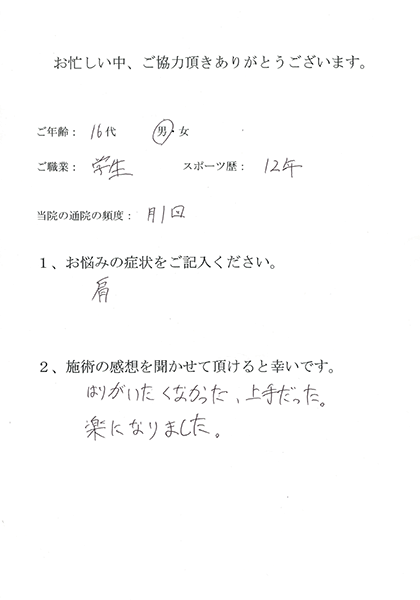 お忙しい中、ご協力頂きありがとうございます。
ご年齢： 16代 男・女
ご職業： 学生 スポーツ歴： 12年
当院の通院の頻度： 月1回
１、お悩みの症状をご記入ください。
肩
２、施術の感想を聞かせて頂けると幸いです。
はりがいたくなかった、上手だった。
楽になりました。